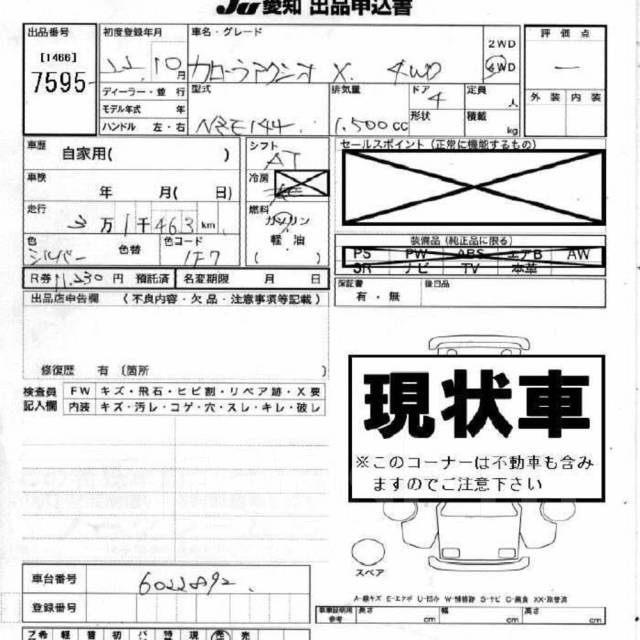 JU 愛知 出品申込書
出品番号 初度登録年月 車名・グレード 評価点
[1466] 2WD
7595 22.10月 カローラアクシオ X 4WD 4WD
ディーラー・並行 型式 排気量 ドア 定員 外装 内装
モデル年式 年 4 人
ハンドル 左・右 NZE144 1.500cc 形状 積載 kg
車歴 シフト セールスポイント(正常に機能するもの)
自家用( ) AT
車検 冷房
年 月( 日)
走行 燃料
3万1千463km ガソリン
色 色替 色コード 軽油 装備品(純正品に限る)
シルバー 1F7 ( ) PS PW ABS エアB AW
SR ナビ TV 本革
R券 11.230円 預託済 名変期限 月 日 保証書 後日品
有・無
出品店申告欄 (不良内容・欠品・注意事項等記載)
修復歴 有 〔箇所 〕
検査員 FW キズ・飛石・ヒビ割・リペア跡・X要
記入欄 内装 キズ・汚レ・コゲ・穴・スレ・キレ・破レ
現状車
※このコーナーは不動車も含み
ますのでご注意下さい
スペア
車台番号 6022892
A-線キズ E-エクボ U-凹み W-補修跡 S-サビ C-腐食 XX-取替済
登録番号 車庫証明用参考 長さ cm 幅 cm 高さ cm